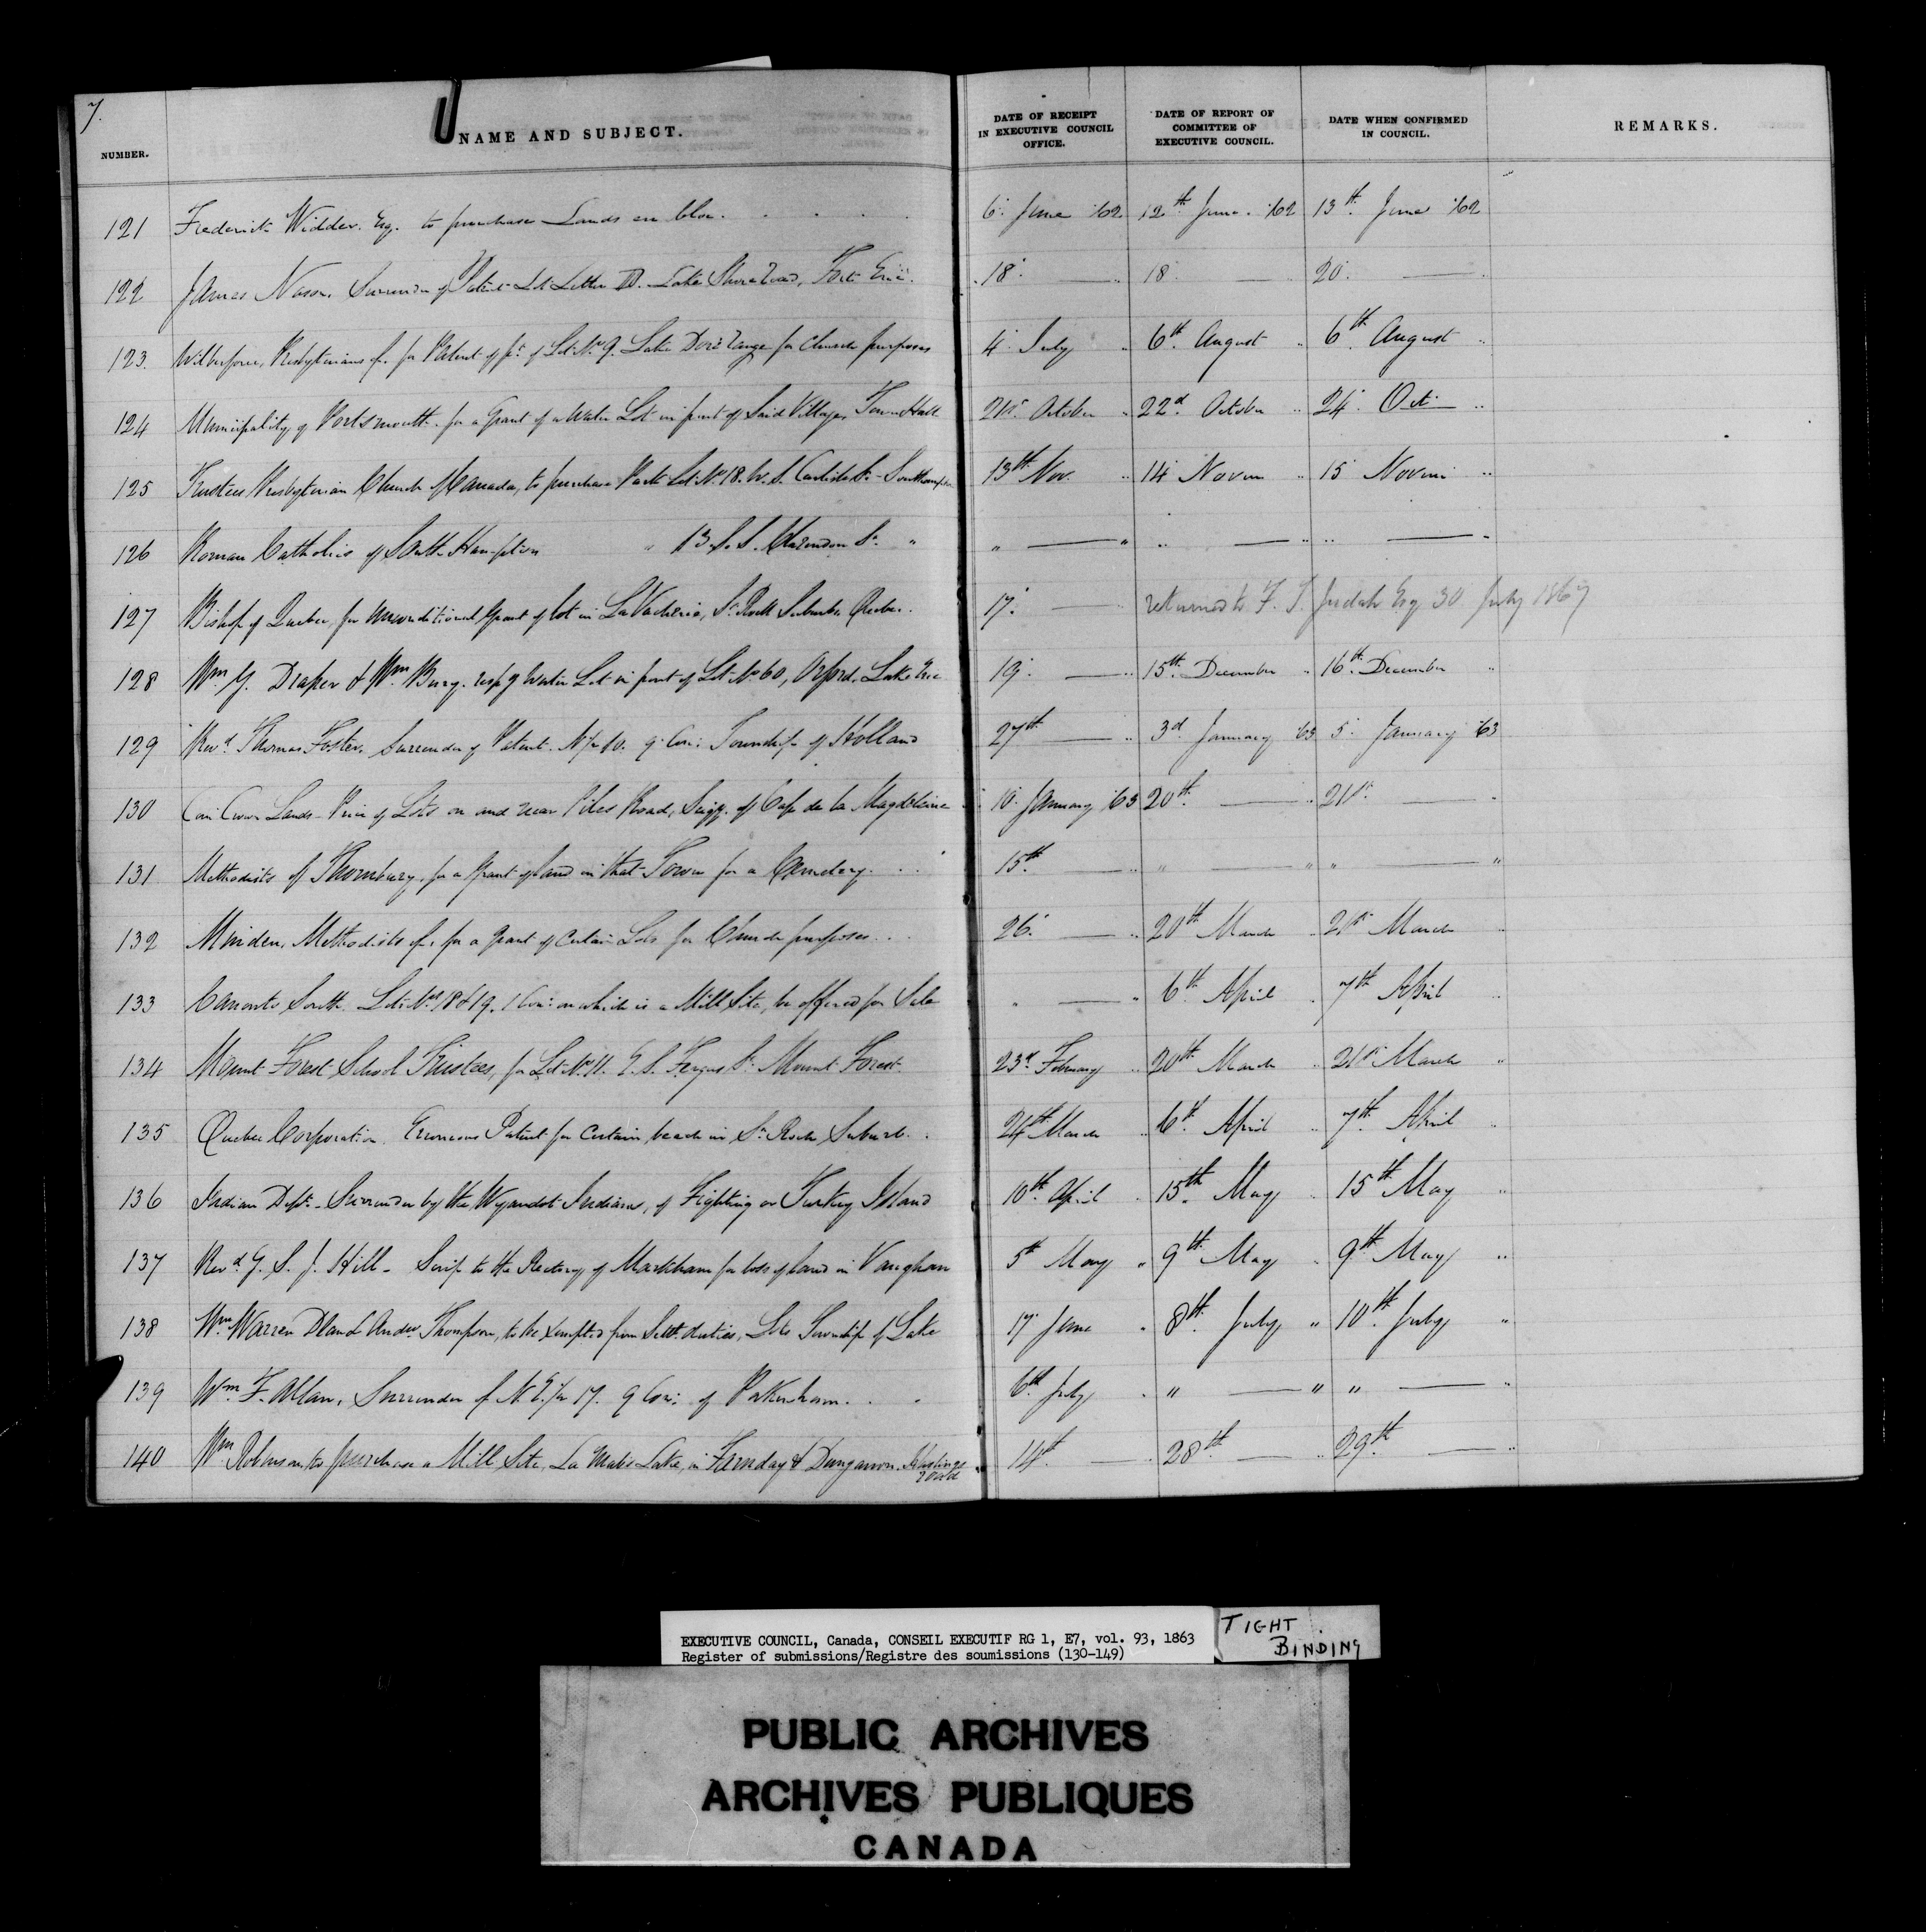 7.
NUMBER.
NAME AND SUBJECT.
DATE OF RECEIPT
IN EXECUTIVE COUNCIL
OFFICE.
DATE OF REPORT OF
COMMITTEE OF
EXECUTIVE COUNCIL.
DATE WHEN CONFIRMED
IN COUNCIL.
REMARKS.
121 Frederick Widder. Esq. to purchase Lands en bloc. 6 June '62 12th June. '62 13th June '62
122 James Surrender of Patent Lot Letter Lake Shore Road, Fort Erie. 18 — 18 — 20 —
123. Wilberforce, Presbyterians of. for Patent of pt of Lot No 9. Lake Doré Range for Church purposes 4 July " 6th August " 6th August "
124 Municipality of Portsmouth. for a Grant of a Water Lot in front of Said Village, Town Hall 21st October " 22d October " 24 Oct. "
125 Trustees Presbyterian Church of Canada, to purchase Park Lot No 18. W. S. Carlisle St - Southampton 13th Nov. " 14 Novem " 15 Novem "
126 Roman Catholics of South Hampton " 13 S. S. Clarendon St. " " — " " — " " — "
127 Bishop of Quebec, for unconditional Grant of lot in La Vacherie, St Roch Suburbs Quebec. 17. — returned to F. T. Judah Esq 30 July 1867
128 Wm G. Draper & Wm resp g Water Lot in front of Lot No 60, Orford, Lake Erie 19. — " 15th December " 16th December "
129 Revd Thomas Foster. Surrender of Patent. N ½ 10. 9 Con: Township of Holland 27th — " 3d January '63 5. January '63
130 Com Crown Lands - Price of Lots on and near Piles Road, Seigy. of Cap de la Magdeleine 10. January '63 20th. — " 21st —
131 Methodists of Thornbury, for a Grant of land in that Town for a Cemetery. 15th. — " " — " " — "
132 Minden, Methodists of, for a Grant of Certain Lots for Church purposes. 26. — " 20th March " 21st March "
133 Canonto South. Lots Nos 18 & 19. 1 Con: on which is a Mill Site, be offered for Sale " — " 6th April " 7th April "
134 Mount Forest School Trustees, for Lot No 11. E. S. Fergus St Mount Forest. 23d February " 20th March " 21st March "
135 Quebec Corporation. Erroneous Patent for Certain beach in St Rochs Suburb. 24th March " 6th April " 7th April "
136 Indian Dept. - Surrender by the Wyandot Indians, of Fighting or Turkey Island 10th April " 15th May " 15th May "
137 Revd G. S. J. Hill - Scrip to the Rectory of Markham for loss of land in Vaughan 5th May " 9th May " 9th May "
138 Wm Warren and Andw Thompson, to be exempted from Settt duties, Lots Township of Lake 17 June " 8th July " 10th July "
139 Wm F. Allan, Surrender of N. E. ½ 17. 9 Con: of Pakenham. 6th July " " — " " — "
140 Wm Robinson, to purchase a Mill Site, in Faraday & Dungannon. Hastings Road 14th — " 28th — " 29th — "
EXECUTIVE COUNCIL, Canada, CONSEIL EXECUTIF RG 1, E7, vol. 93, 1863
Register of submissions/Registre des soumissions (130-149)
TIGHT
BINDING
PUBLIC ARCHIVES
ARCHIVES PUBLIQUES
CANADA